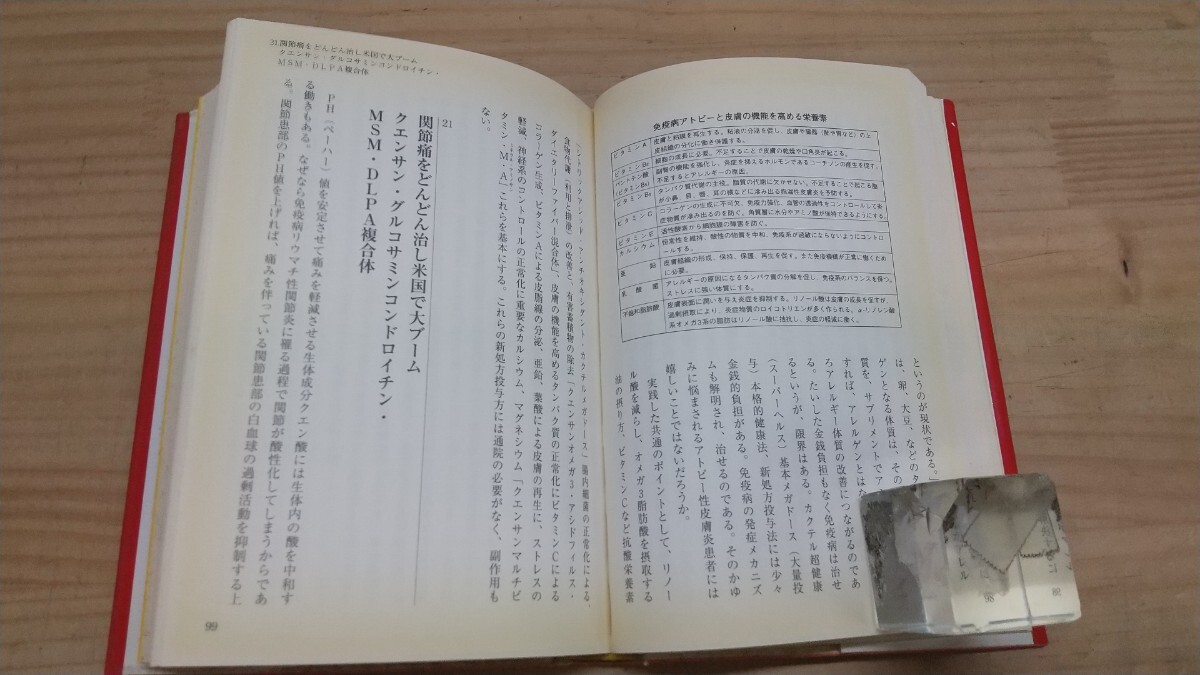 免疫病アトピーと皮膚の機能を高める栄養素
ビタミンA
皮膚と粘膜を再生する。粘液の分泌を促し、皮膚や臓器(肺や胃など)の上
皮組織の分化に働き保護する。
細胞の成長に必要。不足することで皮膚の乾燥や口角炎が起こる。
パントテン酸
副腎の機能を強化し、炎症を抑えるホルモンであるコーチゾンの産生を促す。
不足するとアレルギーの原因。
タンパク質代謝の主役。脂質の代謝に欠かせない。不足することで起こる酸
が小鼻、目、唇、耳の横などに滲み出る脂漏性皮膚炎を予防する。
ビタミンC
コラーゲンの生成に不可欠、免疫力強化、血管の透過性をコントロールして炎
症物質が滲み出るのを防ぐ。角質層に水分やアミノ酸が保持できるようにする。
ビタミンE
活性酸素から細胞膜の障害を防ぐ。
カルシウム
恒常性を維持、酸性の物質を中和、免疫系が過敏にならないようにコントロ
ールする。
亜鉛
皮膚組織の形成、保修、保護、再生を促す。また免疫機構が正常に働くため
に必要。
乳酸菌
アレルギーの原因になるタンパク質の分解を促し、免疫系のバランスを保つ。
ストレスに強い体質にする。
不飽和脂肪酸
皮膚表面に潤いを与え炎症を抑制する。リノール酸は皮膚の成長を促すが、
過剰摂取により、炎症物質のロイコトリエンが多く作られる。α-リノレン酸
系オメガ3系の脂肪はリノール酸に拮抗し、炎症の軽減に働く。
というのが現状である。」
は、卵、大豆、などのタ
ゲンとなる体質は、その
質を、サプリメントでア
すれば、アレルゲンとはな
ろアレルギー体質の改善につながるのであ
る。たいした金銭的負担もなく免疫病は治せ
るというが、限界はある。カクテル超健康
(スーパーヘルス)基本メガドース(大量投
与)本格的健康法、新処方投与法には少々
金銭的負担がある。免疫病の発症メカニズ
ムも解明され、治せるのである。そのかゆ
みに悩まされるアトピー性皮膚炎患者には
嬉しいことではないだろうか。
実践した共通のポイントとして、リノー
ル酸を減らし、オメガ3脂肪酸を摂取する
油の摂り方、ビタミンCなど抗酸栄養素
98
食物代謝(利用と排泄)の改善と、有害蓄積物の除去「クエンサンオメガ3・アシドフィルス・
タイエタリーファイバー混合体」、皮膚の機能を高めるタンパク質の正常化にビタミンCによる
コラーゲン生成、ビタミンAによる皮脂線の分泌、亜鉛、葉酸による皮膚の再生に、ストレスの
軽減、神経系のコントロールの正常化に重要なカルシウム、マグネシウム「クエンサンマルチビ
タミン・M・A」これらを基本にする。これらの新処方投与方には通院の必要がなく、副作用も
ない。
21
関節痛をどんどん治し米国で大ブーム
クエンサン・グルコサミンコンドロイチン・
MSM・DLPA複合体
PH(ペーハー)値を安定させて痛みを軽減させる生体成分クエン酸には生体内の酸を中和す
る働きもある。なぜなら免疫病リウマチ性関節炎に罹る過程で関節が酸性化してしまうからであ
る。関節患部のPH値を上げれば、痛みを伴っている関節患部の白血球の過剰活動を抑制する上
21 関節痛をどんどん治し米国で大ブーム
クエンサン・グルコサミンコンドロイチン・
MSM・DLPA複合体
99